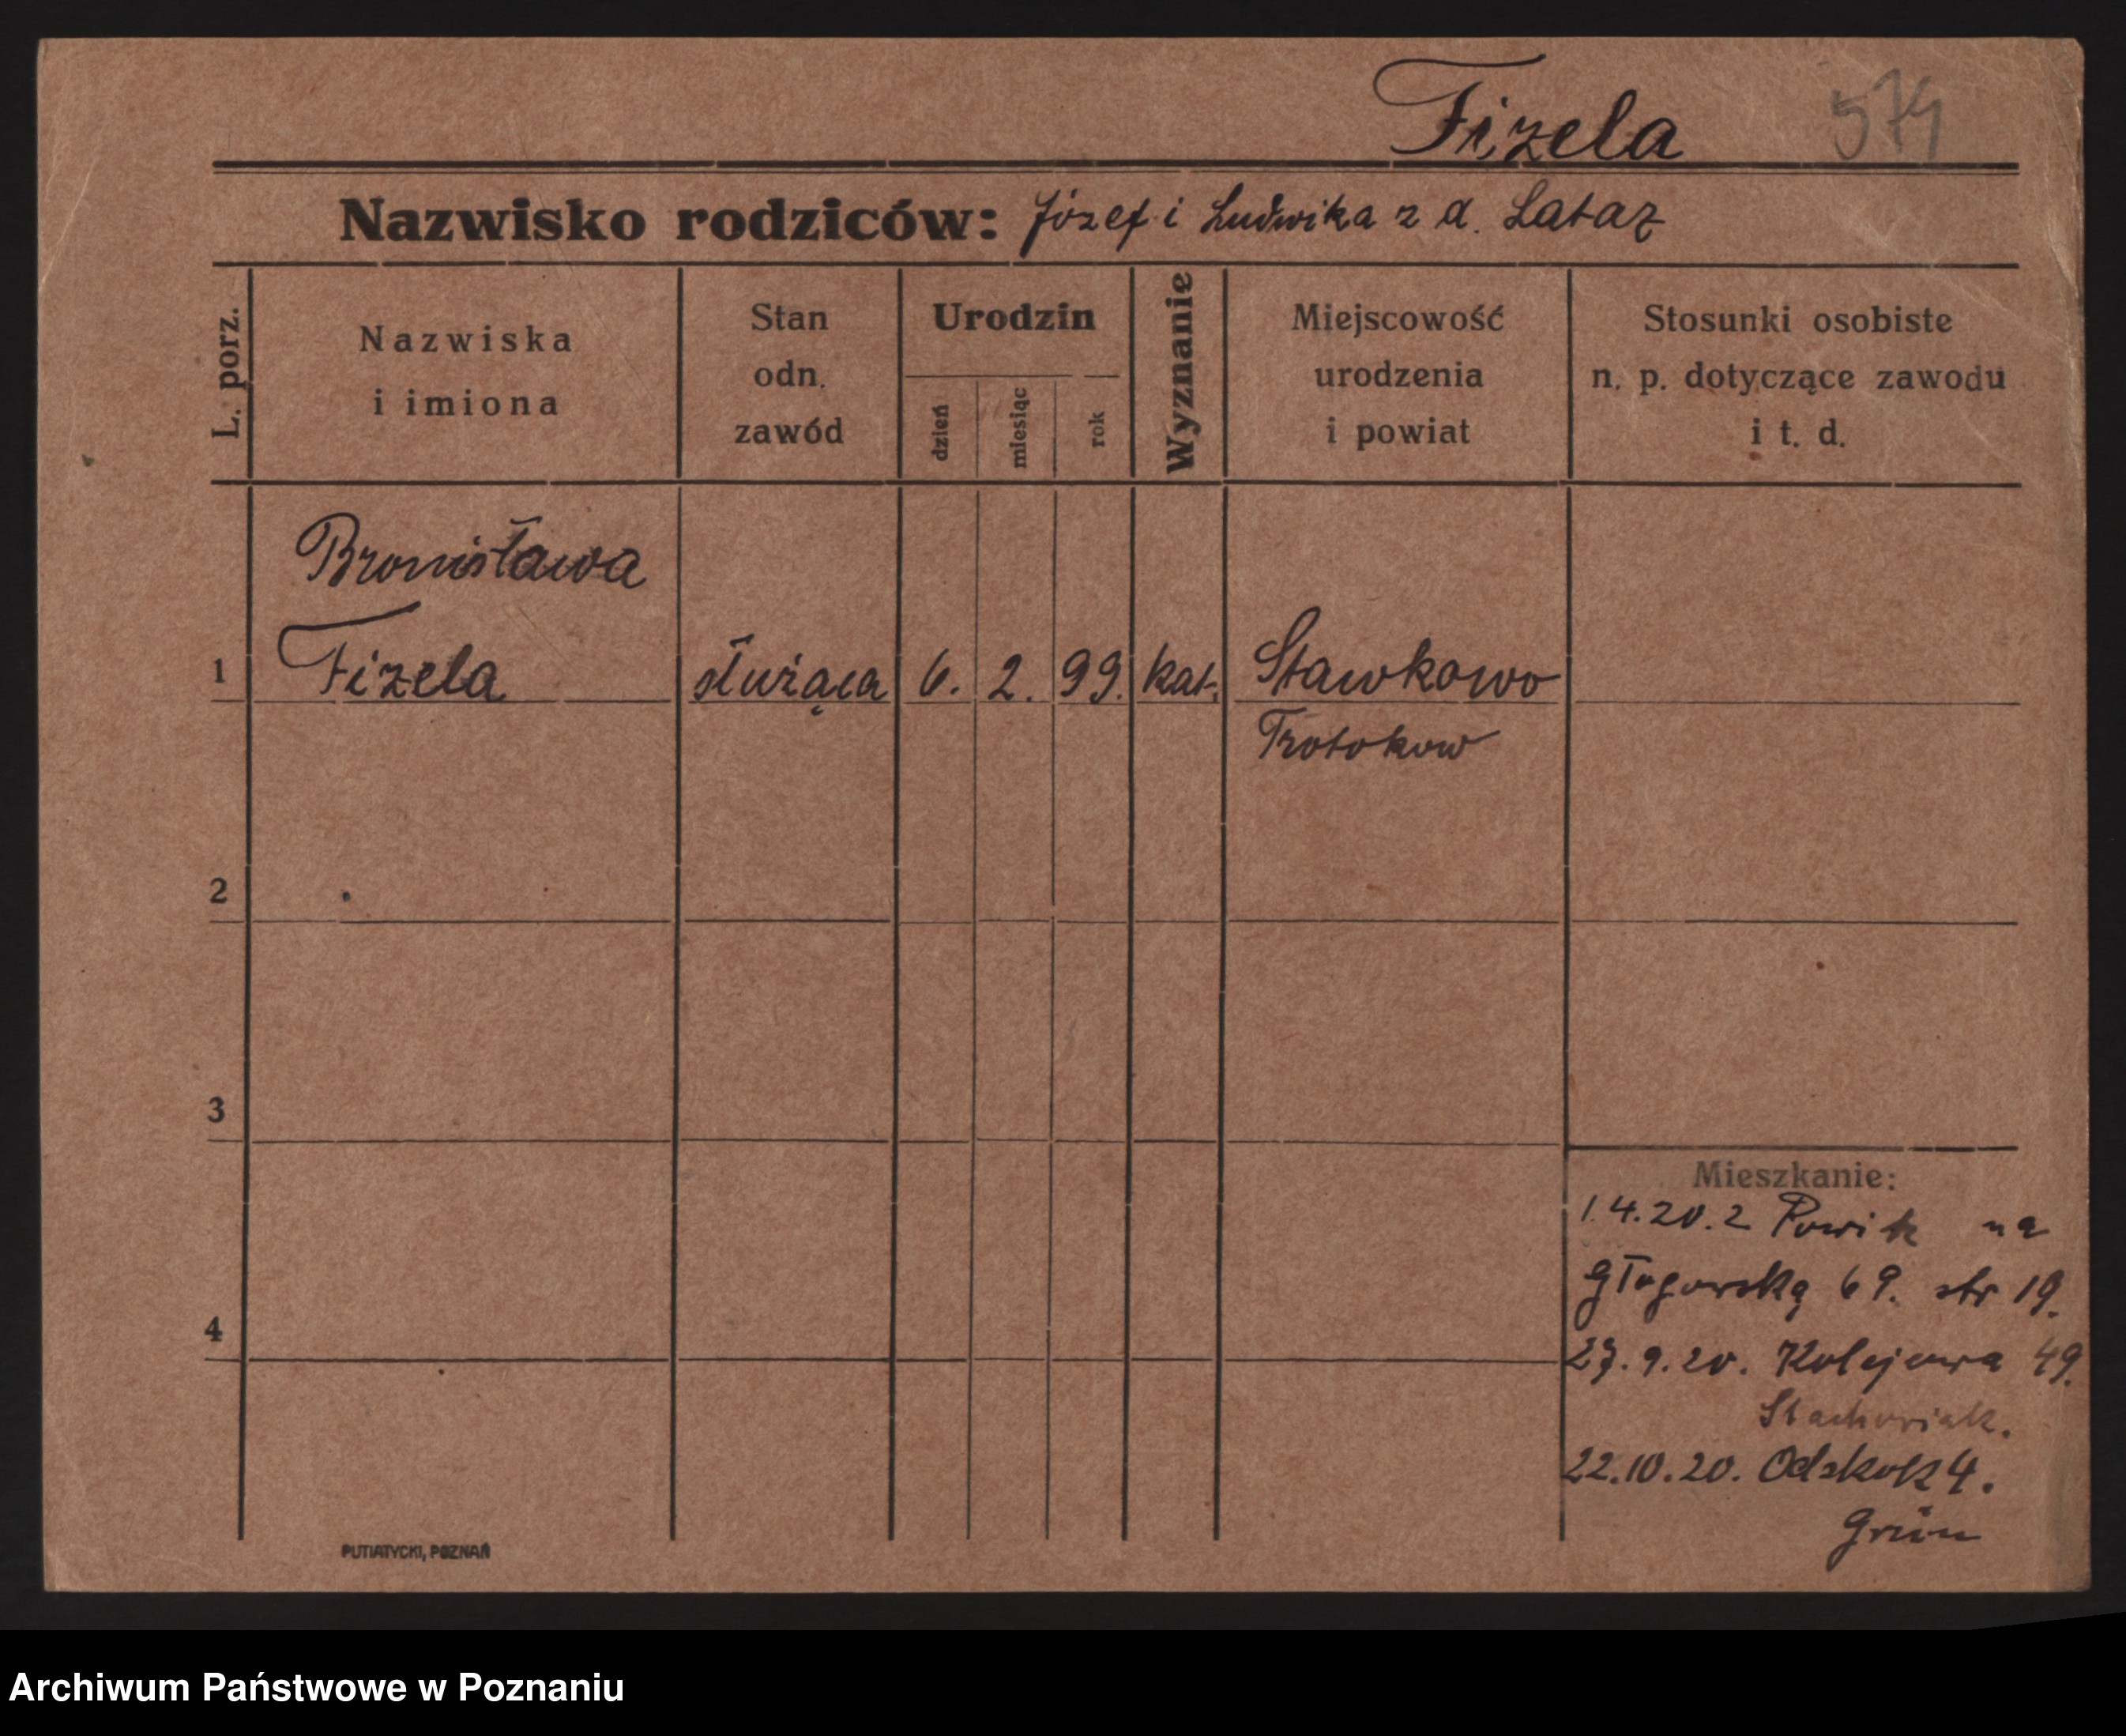 Fizela 579
Nazwisko rodziców: Józef i Ludwika z d. Lataz
L. porz.
Nazwiska
i imiona
Stan
odn.
zawód
Urodzin
dzień
miesiąc
rok
Wyznanie
Miejscowość
urodzenia
i powiat
Stosunki osobiste
n. p. dotyczące zawodu
i t. d.
Bronisława
1 Fizela służąca 6. 2. 99. kat. Sławkowo
Trotokow
2
3
Mieszkanie:
1.4.20.2 na
Głogowską 69. str 19.
4
27.9.20. Kolejowa 49.
Stachowiak.
22.10.20. 4.
Grün
PUTIATYCKI, POZNAŃ
Archiwum Państwowe w Poznaniu